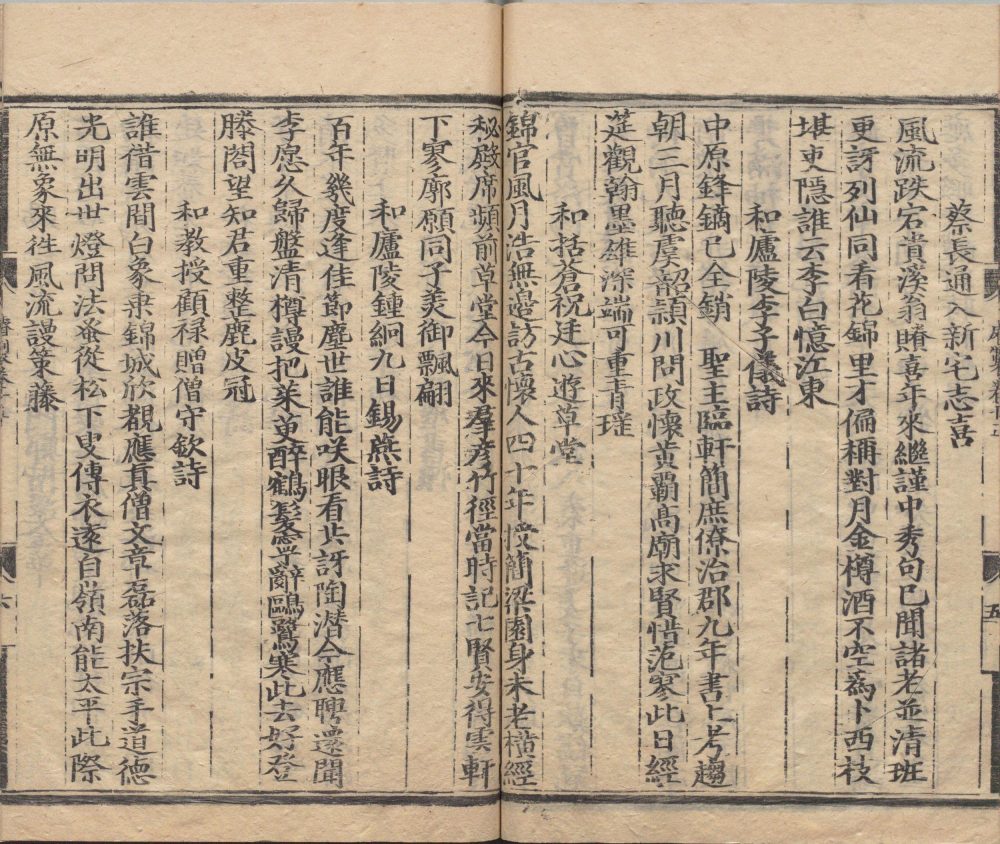 蔡長通入新宅志喜
風流跌宕貴溪翁賭喜年來繼謹中秀句已聞諸老並清班
更訝列仙同看花錦里才偏稱對月金樽酒不空爲卜西枝
堪吏隱誰云李白憶江東
和廬陵李子儀詩
中原鋒鏑已全銷 聖主臨軒簡庶僚治郡九年書上考趨
朝三月聽虞韶潁川問政懷黃霸高廟求賢惜范寥此日經
筵觀翰墨雄深端可重青瑤
和括蒼祝廷心遊草堂
錦官風月浩無邊訪古懷人四十年授簡梁園身未老橫經
秘殿席頻前草堂今日來羣彥竹徑當時記七賢安得雲軒
下寥廓願同子羙御飄翩
和廬陵鍾絅九日錫燕詩
百年幾度逢佳節塵世誰能咲眼看共訝陶潜今應聘還聞
李愿久歸盤清樽謾把茱萸醉鶴髪寧辭鷗鷺寒此去好登
滕閣望知君重整鹿皮冠
和教授顧祿贈僧守欽詩
誰借雲間白象乗錦城欣覩應真僧文章磊落扶宗手道德
光明出世燈問法蚤從松下叟傳衣遂自嶺南能太平此際
原無象來徃風流謾策藤
五
六